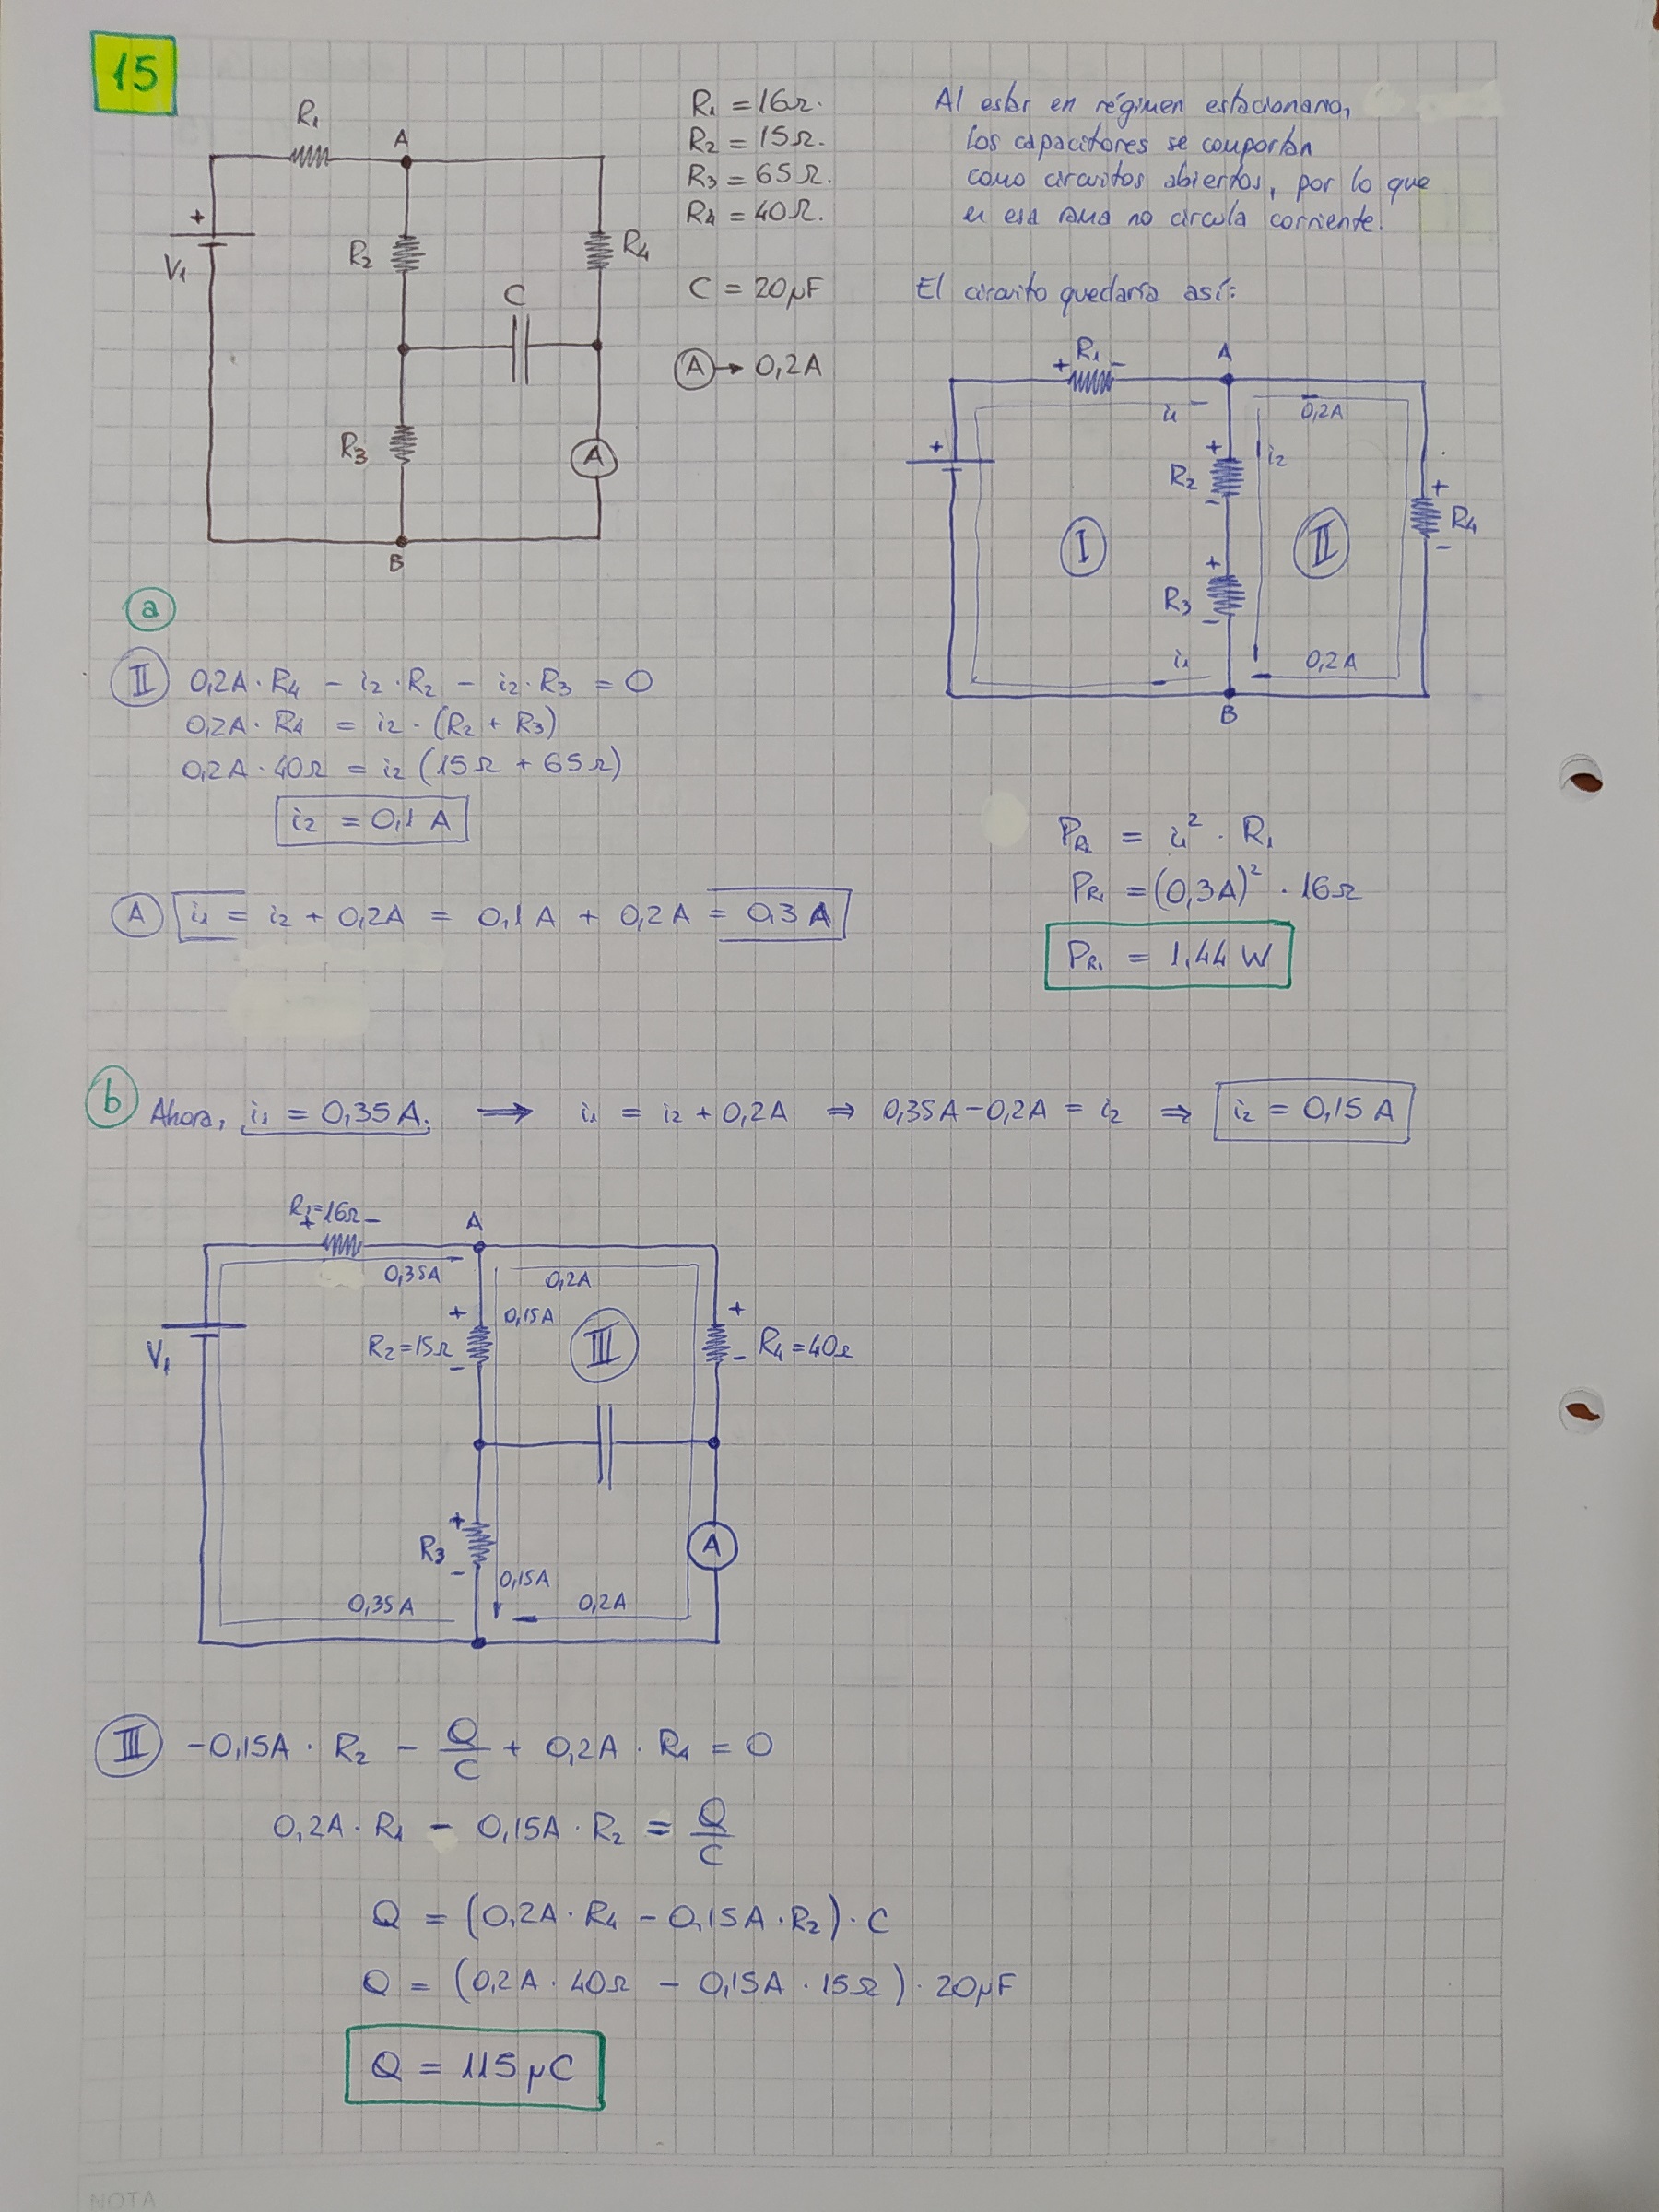 15
R₁
A
+
V₁
R₂
R₄
C
R₃
A
B
R₁ = 16Ω.
R₂ = 15Ω.
R₃ = 65Ω.
R₄ = 40Ω.
C = 20μF
A → 0,2A
Al estar en régimen estacionario,
los capacitores se comportan
como circuitos abiertos, por lo que
en esa rama no circula corriente.
El circuito quedaría así:
+ R₁ -
A
i₁
0,2A
+
+
i₂
R₂
-
+
R₄
-
I
II
+
R₃
-
i₁
0,2A
B
a
II 0,2A · R₄ - i₂ · R₂ - i₂ · R₃ = 0
0,2A · R₄ = i₂ · (R₂ + R₃)
0,2A · 40Ω = i₂ (15Ω + 65Ω)
i₂ = 0,1 A
A i₁ = i₂ + 0,2A = 0,1 A + 0,2 A = 0,3 A
P_R₁ = i₁² · R₁
P_R₁ = (0,3A)² · 16Ω
P_R₁ = 1,44 W
b Ahora, i₁ = 0,35A. → i₁ = i₂ + 0,2A ⇒ 0,35A - 0,2A = i₂ ⇒ i₂ = 0,15 A
R₁=16Ω
+ -
A
0,35A
0,2A
+
0,15A
+
V₁
R₂=15Ω
-
III
-
R₄=40Ω
+
R₃
-
A
0,15A
0,35A
0,2A
III -0,15A · R₂ - Q/C + 0,2A · R₄ = 0
0,2A · R₄ - 0,15A · R₂ = Q/C
Q = (0,2A · R₄ - 0,15A · R₂) · C
Q = (0,2A · 40Ω - 0,15A · 15Ω) · 20μF
Q = 115 μC
NOTA